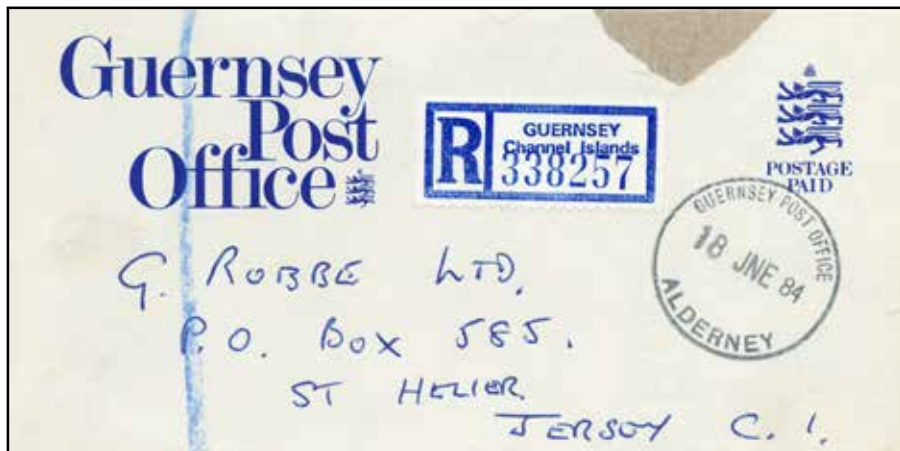 Guernsey
Post
Office
R
GUERNSEY
Channel Islands
338257
POSTAGE
PAID
GUERNSEY POST OFFICE
18 JNE 84
ALDERNEY
G. ROBBE LTD.
P.O. BOX 585.
ST HELIER
JERSEY C. I.